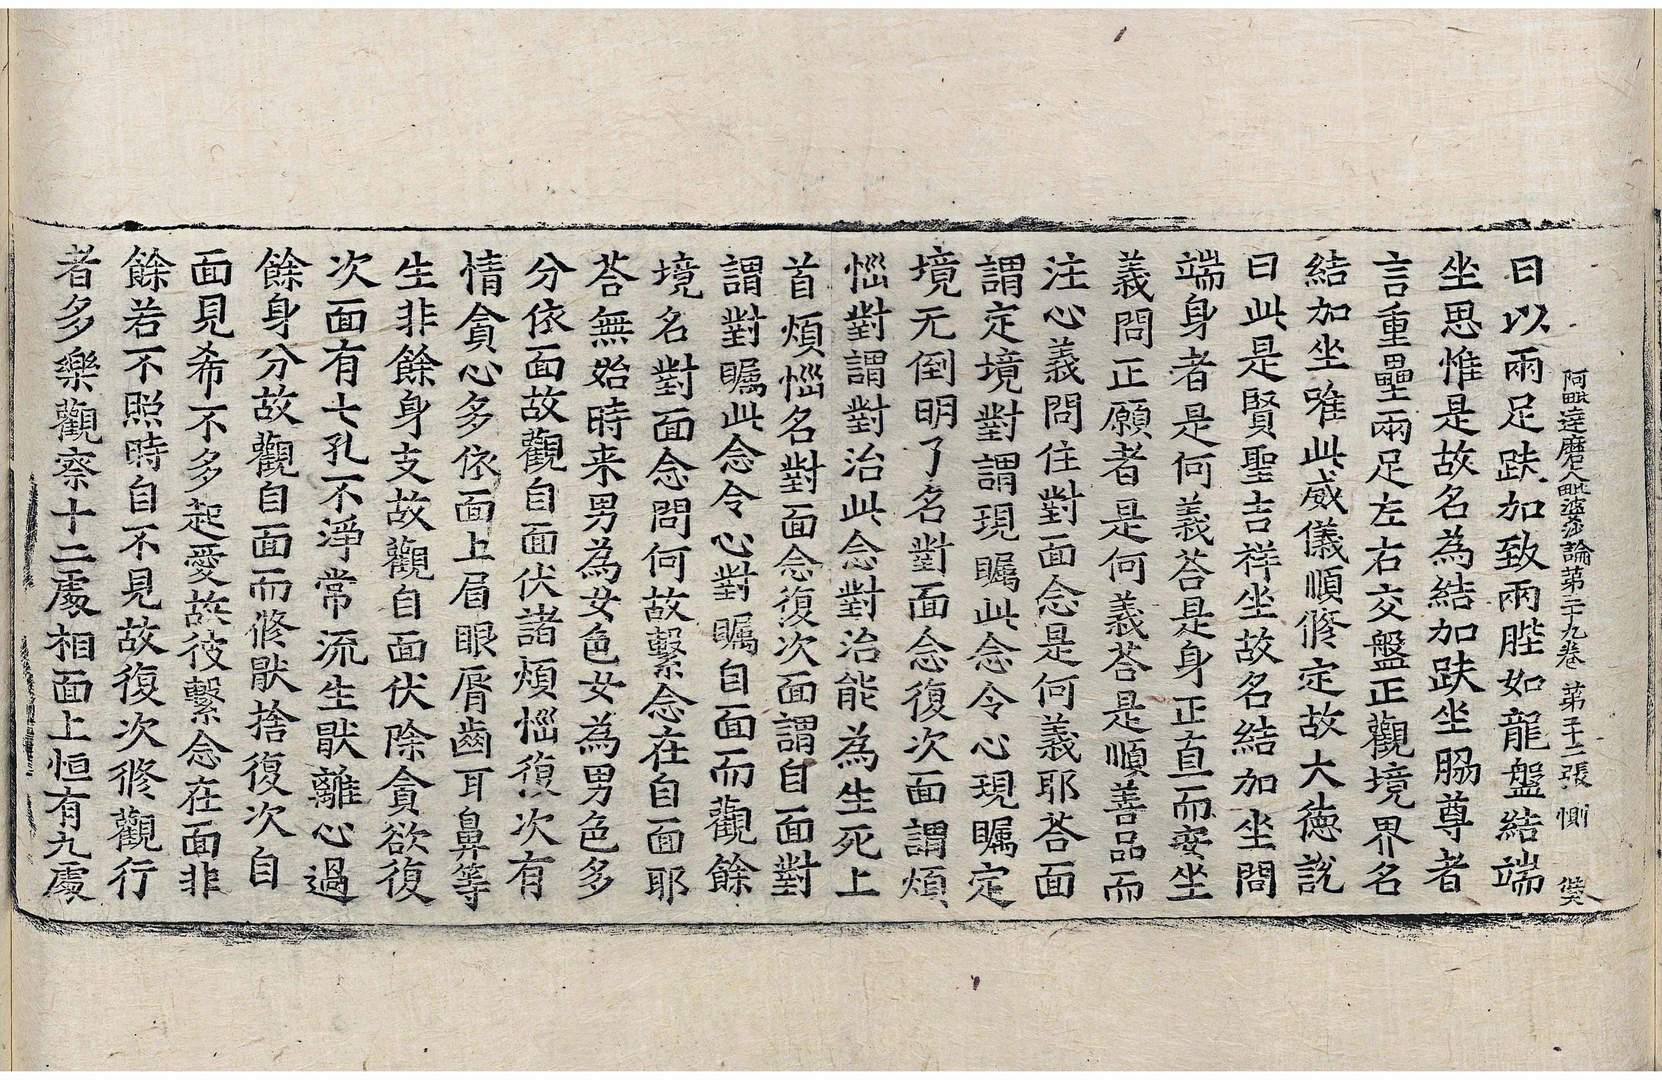 阿毗達磨大毗婆沙論第三十九卷 第二十二張 惻
曰以兩足趺加致兩䏶如龍盤結端
坐思惟是故名為結加趺坐脇尊者
言重壘兩足左右交盤正觀境界名
結加坐唯此威儀順修定故大德說
曰此是賢聖吉祥坐故名結加坐問
端身者是何義荅是身正直而安坐
義問正願者是何義荅是順善品而
注心義問住對面念是何義耶荅面
謂定境對謂現矚此念令心現矚定
境无倒明了名對面念復次面謂煩
惱對謂對治此念對治能為生死上
首煩惱名對面念復次面謂自面對
謂對矚此念令心對矚自面而觀餘
境名對面念問何故繫念在自面耶
荅無始時来男為女色女為男色多
分依面故觀自面伏諸煩惱復次有
情貪心多依面上眉眼脣齒耳鼻等
生非餘身支故觀自面伏除貪欲復
次面有七孔不淨常流生猒離心過
餘身分故觀自面而修猒捨復次自
面見希不多起愛故彼繫念在面非
餘若不照時自不見故復次修觀行
者多樂觀察十二處相面上恒有九處